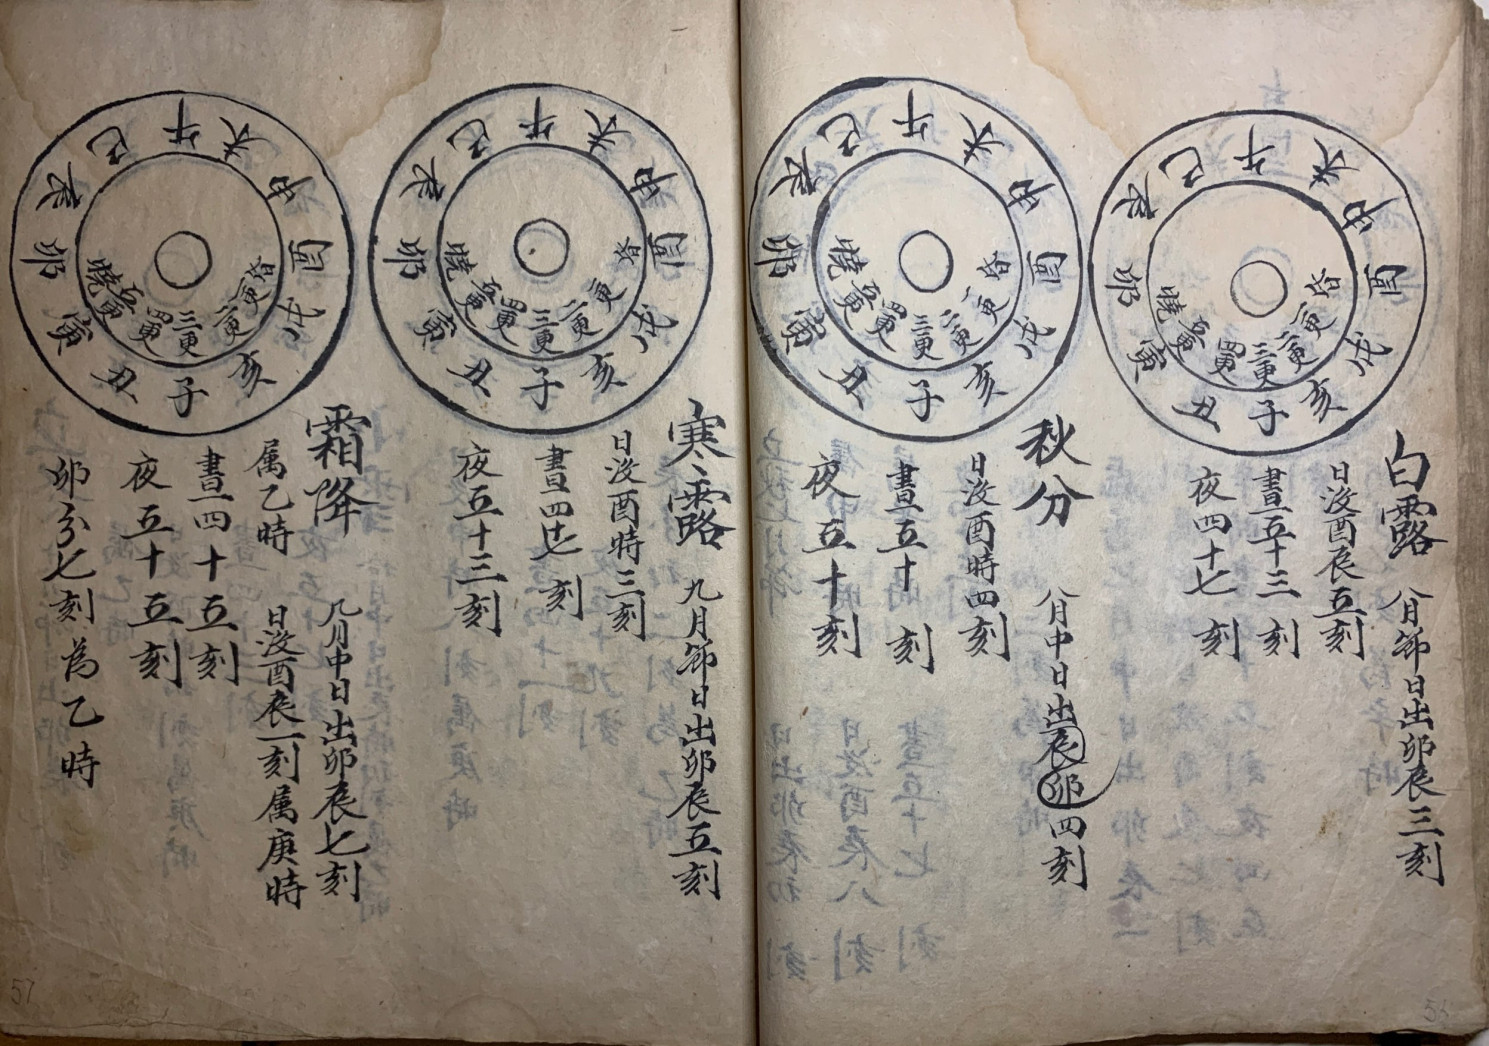 白露 八月節日出卯辰三刻
日沒酉辰五刻
晝五十三刻
夜四十七刻
子丑寅卯辰巳午未申酉戌亥
昏一更二更三更四更五更曉
秋分 八月中日出辰卯四刻
日沒酉時四刻
晝五十刻
夜五十刻
子丑寅卯辰巳午未申酉戌亥
昏一更二更三更四更五更曉
寒露 九月節日出卯辰五刻
日沒酉時三刻
晝四十七刻
夜五十三刻
子丑寅卯辰巳午未申酉戌亥
昏一更二更三更四更五更曉
霜降 九月中日出卯辰七刻
属乙時 日沒酉辰一刻属庚時
晝四十五刻
夜五十五刻
卯分七刻為乙時
子丑寅卯辰巳午未申酉戌亥
昏一更二更三更四更五更曉
57